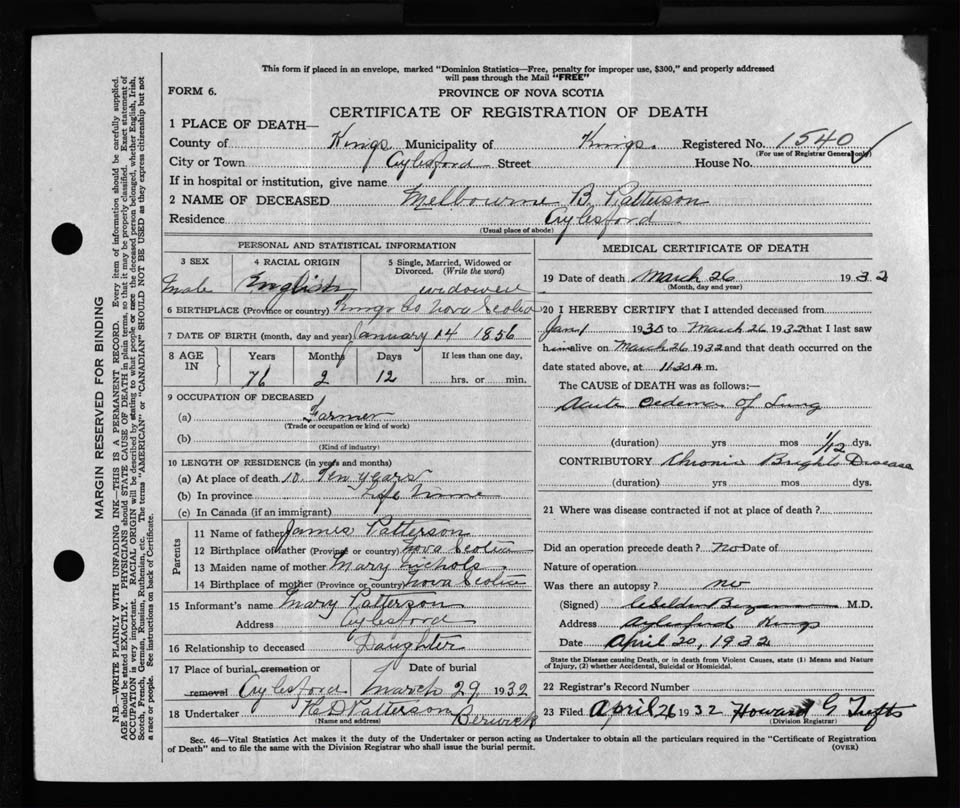 This form if placed in an envelope, marked "Dominion Statistics—Free, penalty for improper use, $300," and properly addressed
will pass through the Mail "FREE"
FORM 6.
PROVINCE OF NOVA SCOTIA
CERTIFICATE OF REGISTRATION OF DEATH
1 PLACE OF DEATH—
County of Kings Municipality of Kings. Registered No. 1540
(For use of Registrar General only)
City or Town Aylesford Street House No.
If in hospital or institution, give name
2 NAME OF DECEASED Melbourne B. Patterson
Residence Aylesford
(Usual place of abode)
PERSONAL AND STATISTICAL INFORMATION
3 SEX
Male
4 RACIAL ORIGIN
English
5 Single, Married, Widowed or
Divorced. (Write the word)
widower
6 BIRTHPLACE (Province or country) Kings Co Nova Scotia
7 DATE OF BIRTH (month, day and year) January 14 1856
8 AGE
IN
Years
76
Months
2
Days
12
If less than one day,
hrs. or min.
9 OCCUPATION OF DECEASED
(a) Farmer
(Trade or occupation or kind of work)
(b)
(Kind of industry)
10 LENGTH OF RESIDENCE (in years and months)
(a) At place of death 10. Ten years
(b) In province Life time
(c) In Canada (if an immigrant)
Parents
11 Name of father James Patterson
12 Birthplace of father (Province or country) Nova Scotia
13 Maiden name of mother Mary Nichols
14 Birthplace of mother (Province or country) Nova Scotia
15 Informant's name Mary Patterson
Address Aylesford
16 Relationship to deceased Daughter
17 Place of burial, cremation or
removal Aylesford
Date of burial
March 29 1932
18 Undertaker H D Patterson Berwick
(Name and address)
MEDICAL CERTIFICATE OF DEATH
19 Date of death March 26 1932
(Month, day and year)
20 I HEREBY CERTIFY that I attended deceased from
Jan 1 1930 to March 26 1932 that I last saw
him alive on March 26 1932 and that death occurred on the
date stated above, at 11.30 A.m.
The CAUSE OF DEATH was as follows:—
Acute oedema of Lung
(duration) yrs mos 1/12 dys.
CONTRIBUTORY Chronic Brights Disease
(duration) yrs mos dys.
21 Where was disease contracted if not at place of death?
Did an operation precede death? no Date of
Nature of operation
Was there an autopsy? no
(Signed) M.D.
Address Aylesford Kings
Date April 20, 1932
State the Disease causing Death, or in death from Violent Causes, state (1) Means and Nature
of Injury, (2) whether Accidental, Suicidal or Homicidal.
22 Registrar's Record Number
23 Filed April 26 1932 Howard G Tufts
(Division Registrar)
Sec. 46—Vital Statistics Act makes it the duty of the Undertaker or person acting as Undertaker to obtain all the particulars required in the "Certificate of Registration
of Death" and to file the same with the Division Registrar who shall issue the burial permit.
(OVER)
MARGIN RESERVED FOR BINDING
N.B.—WRITE PLAINLY WITH UNFADING INK—THIS IS A PERMANENT RECORD. Every item of information should be carefully supplied.
AGE should be stated EXACTLY. PHYSICIANS should STATE CAUSE OF DEATH in plain terms, so that it may be properly classified. Exact statement of
OCCUPATION is very important. RACIAL ORIGIN will be described by stating to what people or race the deceased person belonged, whether English, Irish,
Scotch, French, German, Russian, Ruthenian, etc. The terms "AMERICAN" or "CANADIAN" SHOULD NOT BE USED as they express citizenship but not
a race or people. See instructions on back of Certificate.